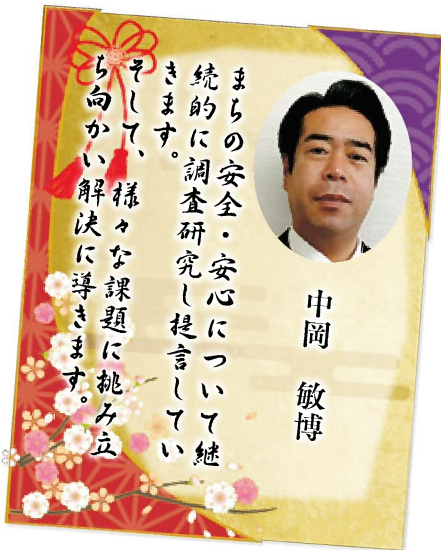 まちの安全・安心について継
続的に調査研究し提言してい
きます。
そして、様々な課題に挑み立
ち向かい解決に導きます。
中岡 敏博